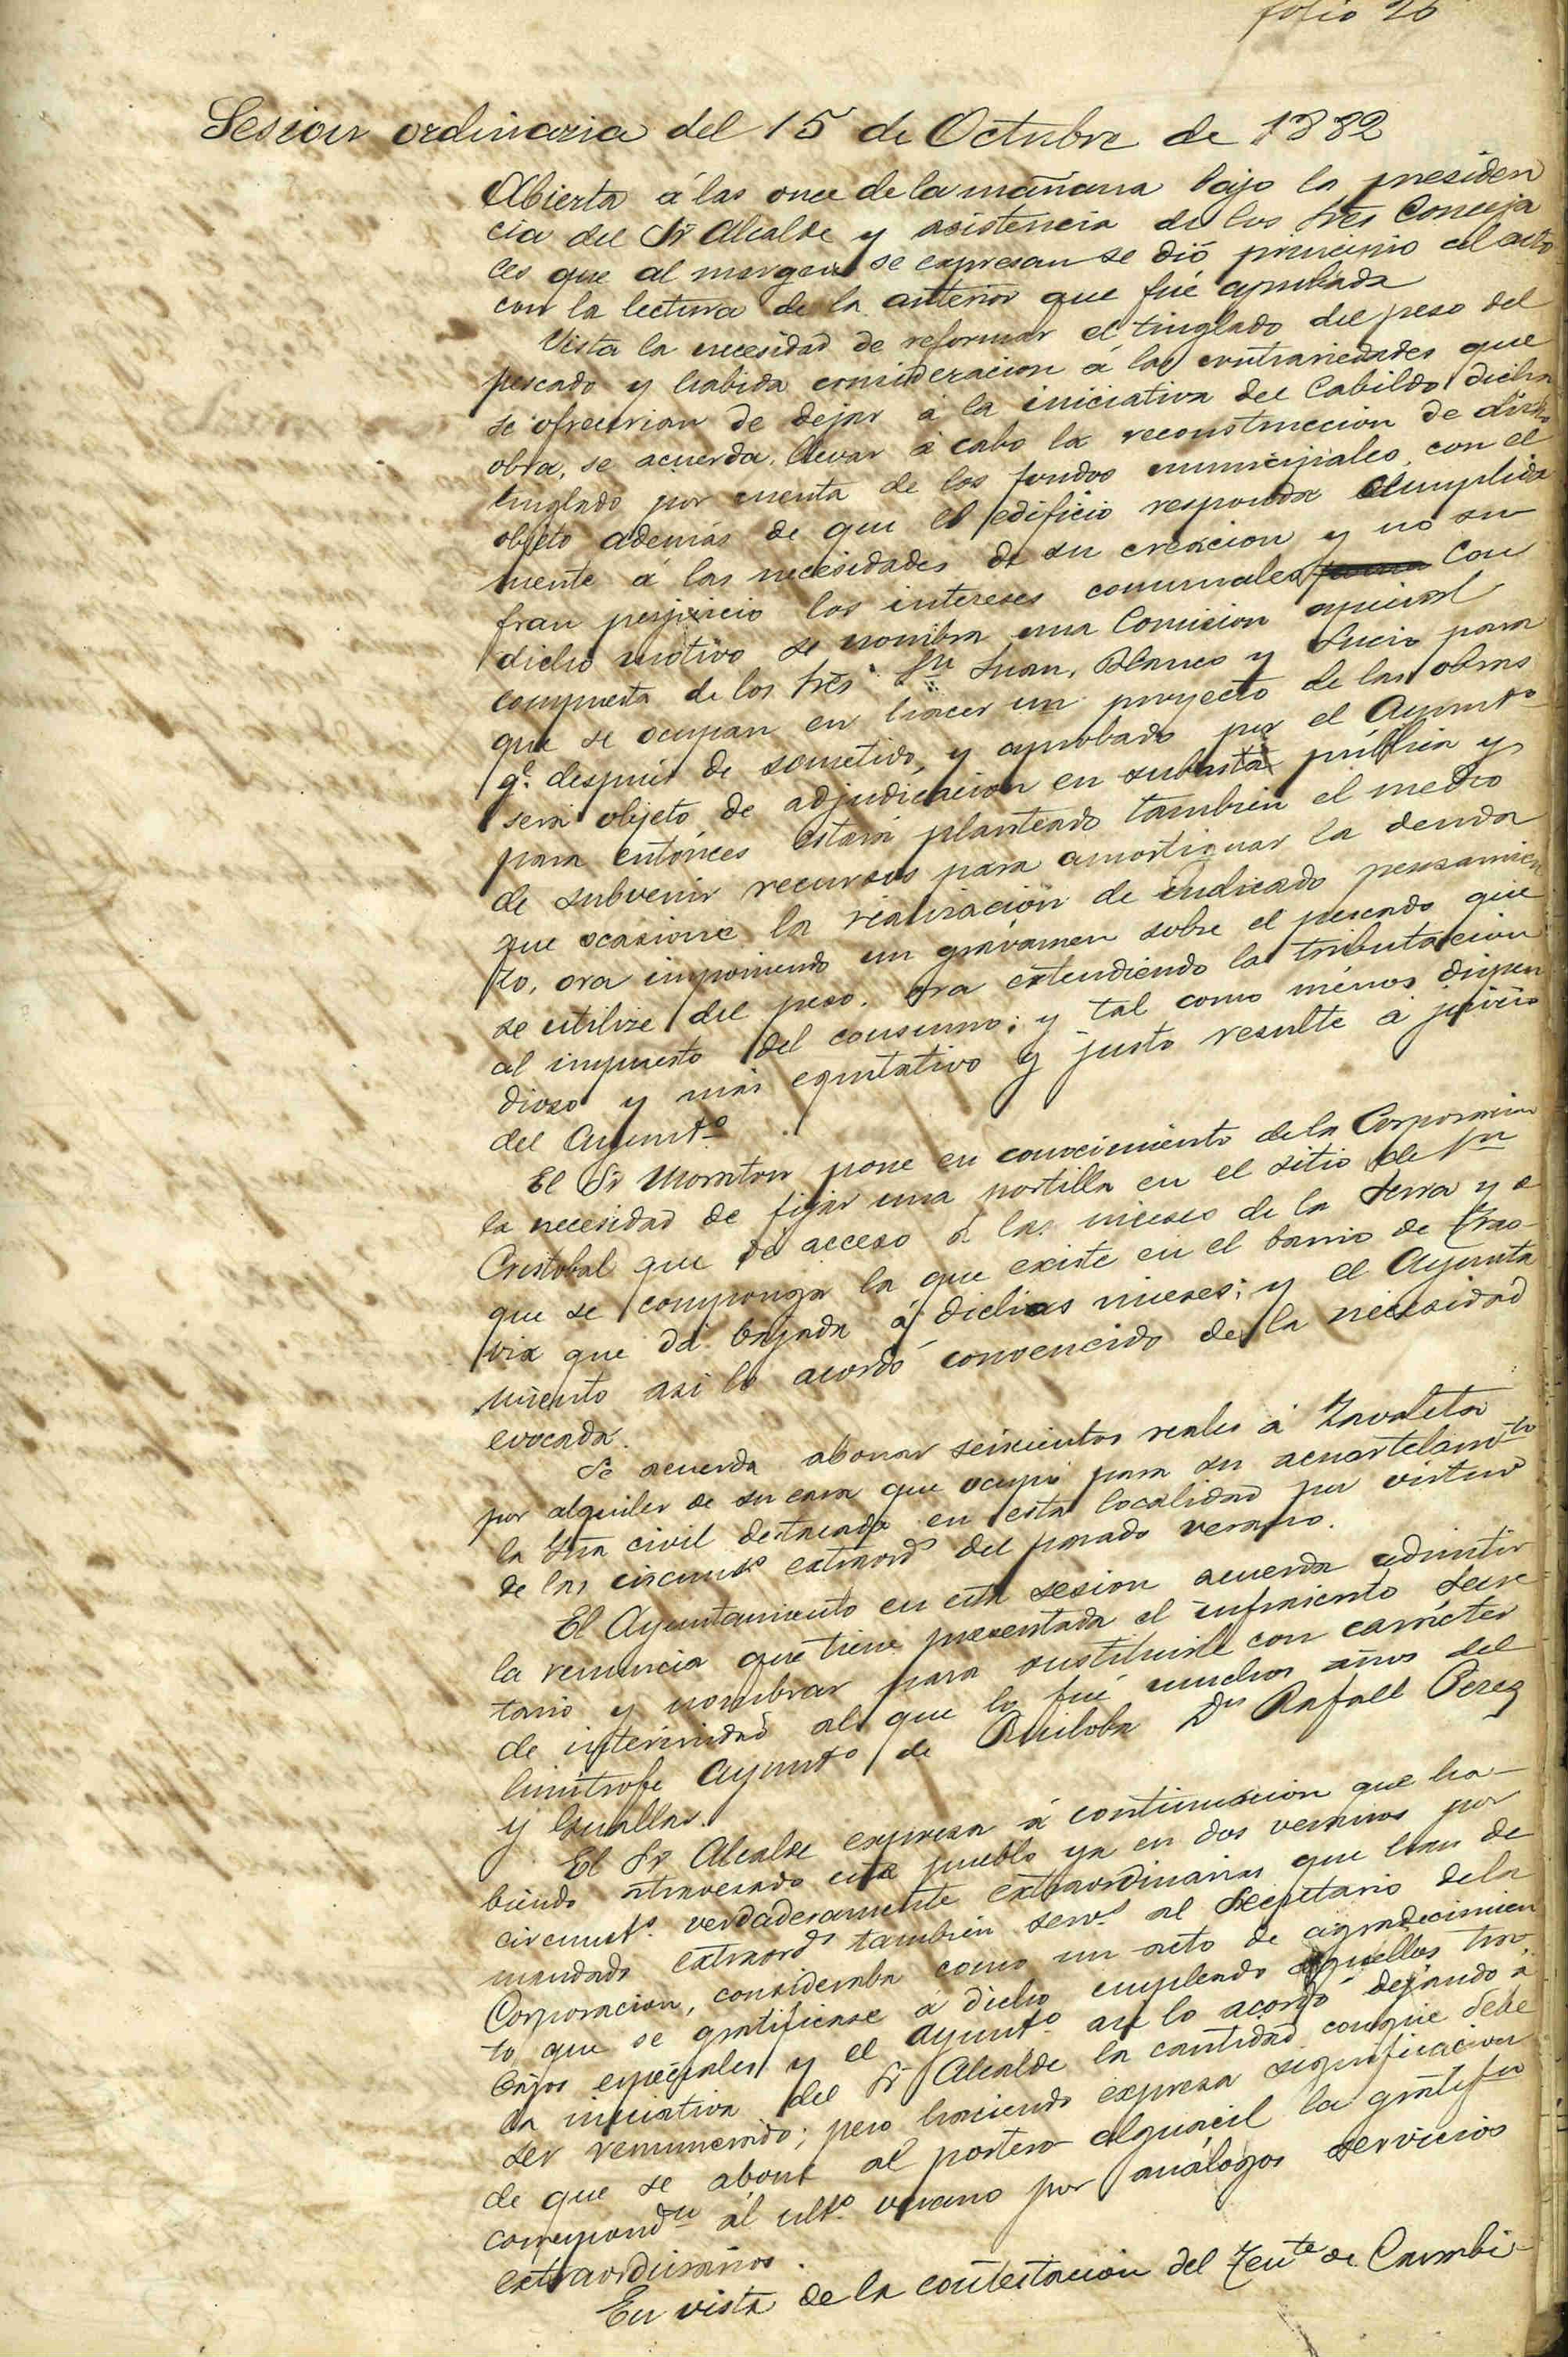 folio 26
Sesion ordinaria del 15 de Octubre de 1882
Abierta á las once de la mañana bajo la presiden
cia del Sr Alcalde y asistencia de los Sres Conceja
les que al margen se expresan se dió principio al acto
con la lectura de la anterior que fué aprobada
Vista la necesidad de reformar el tinglado del peso del
pescado y habida consideracion á las contrariedades que
se ofrecerian de dejar á la iniciativa del Cabildo dicha
obra, se acuerda llevar á cabo la reconstruccion de dicho
tinglado por cuenta de los fondos municipales, con el
objeto además de que el edificio responda cumplida
mente á las necesidades de su creacion y no su
fran perjuicio los intereses comunales Con
dicho motivo se nombra una Comision especial
compuesta de los Sres Sn Juan, Blanco y Lucio para
que se ocupan en hacer un proyecto de las obras
q.e despues de sometido, y aprobado por el Ayunto
será objeto de adjudicacion en subasta pública y
para entónces estará planteado tambien el medio
de subvenir recursos para amortiguar la deuda
que ocasione la realizacion de indicado pensamien
to, ora imponiendo un gravámen sobre el pescado que
se utilize del peso, ora extendiendo la tributacion
al impuesto del consumo; y tal como ménos dispen
dioso y más equitativo y justo resulte á juicio
del Ayunto
El Sr Moratan pone en conocimiento de la Corporacion
la necesidad de fijar una portilla en el sitio de Sn
Cristobal que dá acceso á las mieses de la Serra y á
que se componga la que existe en el barrio de Tras-
via que dá bajada á dichas mieses; y el Ayunta
miento asi lo acordó convencido de la necesidad
evocada.
Se acuerda abonar seiscientos reales á Zavaleta
por alquiler de su casa que ocupó para su acuartelamto
la Gua civil destacada en esta localidad por virtud
de las circunsts extraords del pasado verano.
El Ayuntamiento en esta sesion acuerda admitir
la renuncia que tiene presentada el infraescrito Secre
tario y nombrar para sustituirle con carácter
de interinidad al que lo fué muchos años del
limitrofe Ayunto de Ruiloba Dn Rafael Perez
y
El Sr Alcalde expresa á continuacion que ha-
biendo atravesado este pueblo ya en dos veranos por
circunsts verdaderamente extraordinarias que han de
mandado extraords tambien servs al Secretario de la
Corporacion, consideraba como un acto de agradecimien
to que se gratificase á dicho empleado aquellos tra-
bajos especiales y el Ayunto asi lo acordó dejando á
la iniciativa del Sr Alcalde la cantidad con que debe
ser remunerado; pero haciendo expresa significacion
de que se abone al portero alguacil la gratifon
correspondte al ulto verano por análogos servicios
extraordinarios.
En vista de la contestacion del Tente de Carabi-